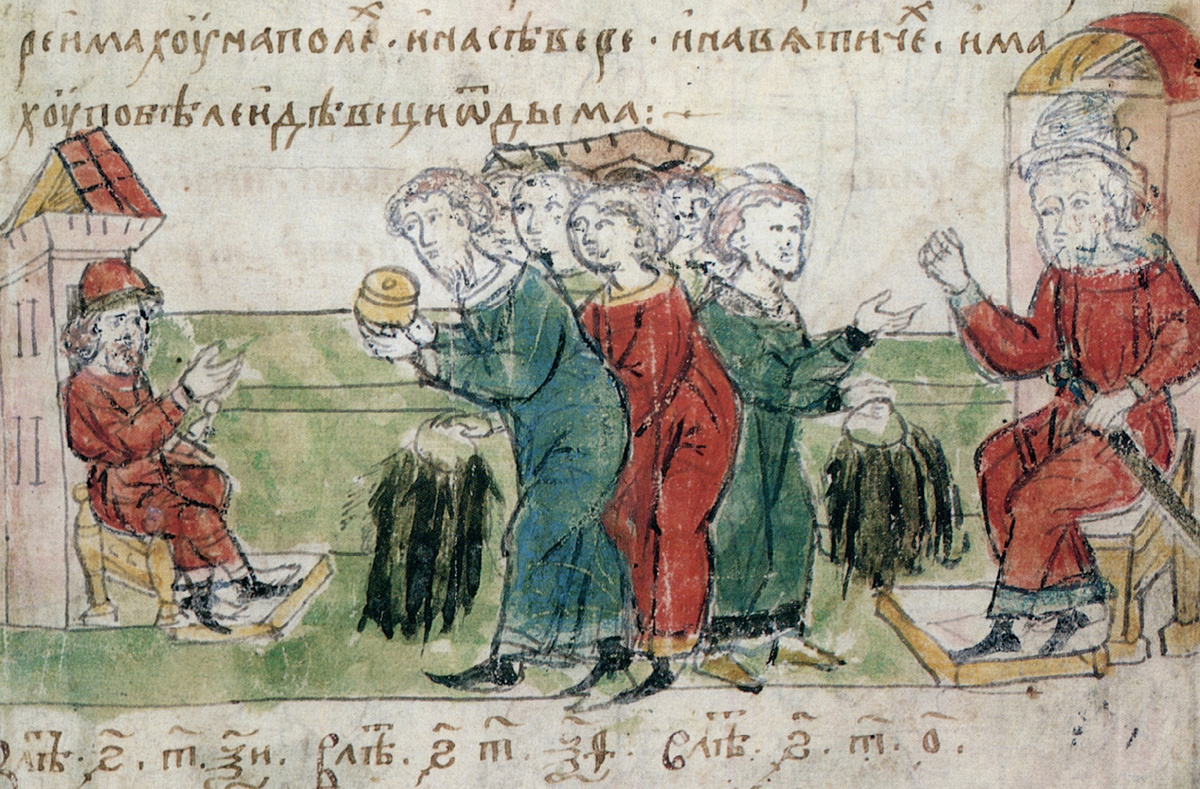 реимахоу на полеⷯ · и на сѣвере · и на вѧтичеⷯ. има
хоу по бѣлеи дѣвеци ѿ дыма:
В лѣⷮ · ҂ѕ · т҃ · ѯ҃и · В лѣⷮ · ҂ѕ т҃ · ѯ҃ѳ · В лѣⷮ · ҂ѕ · т҃ · о҃ ·